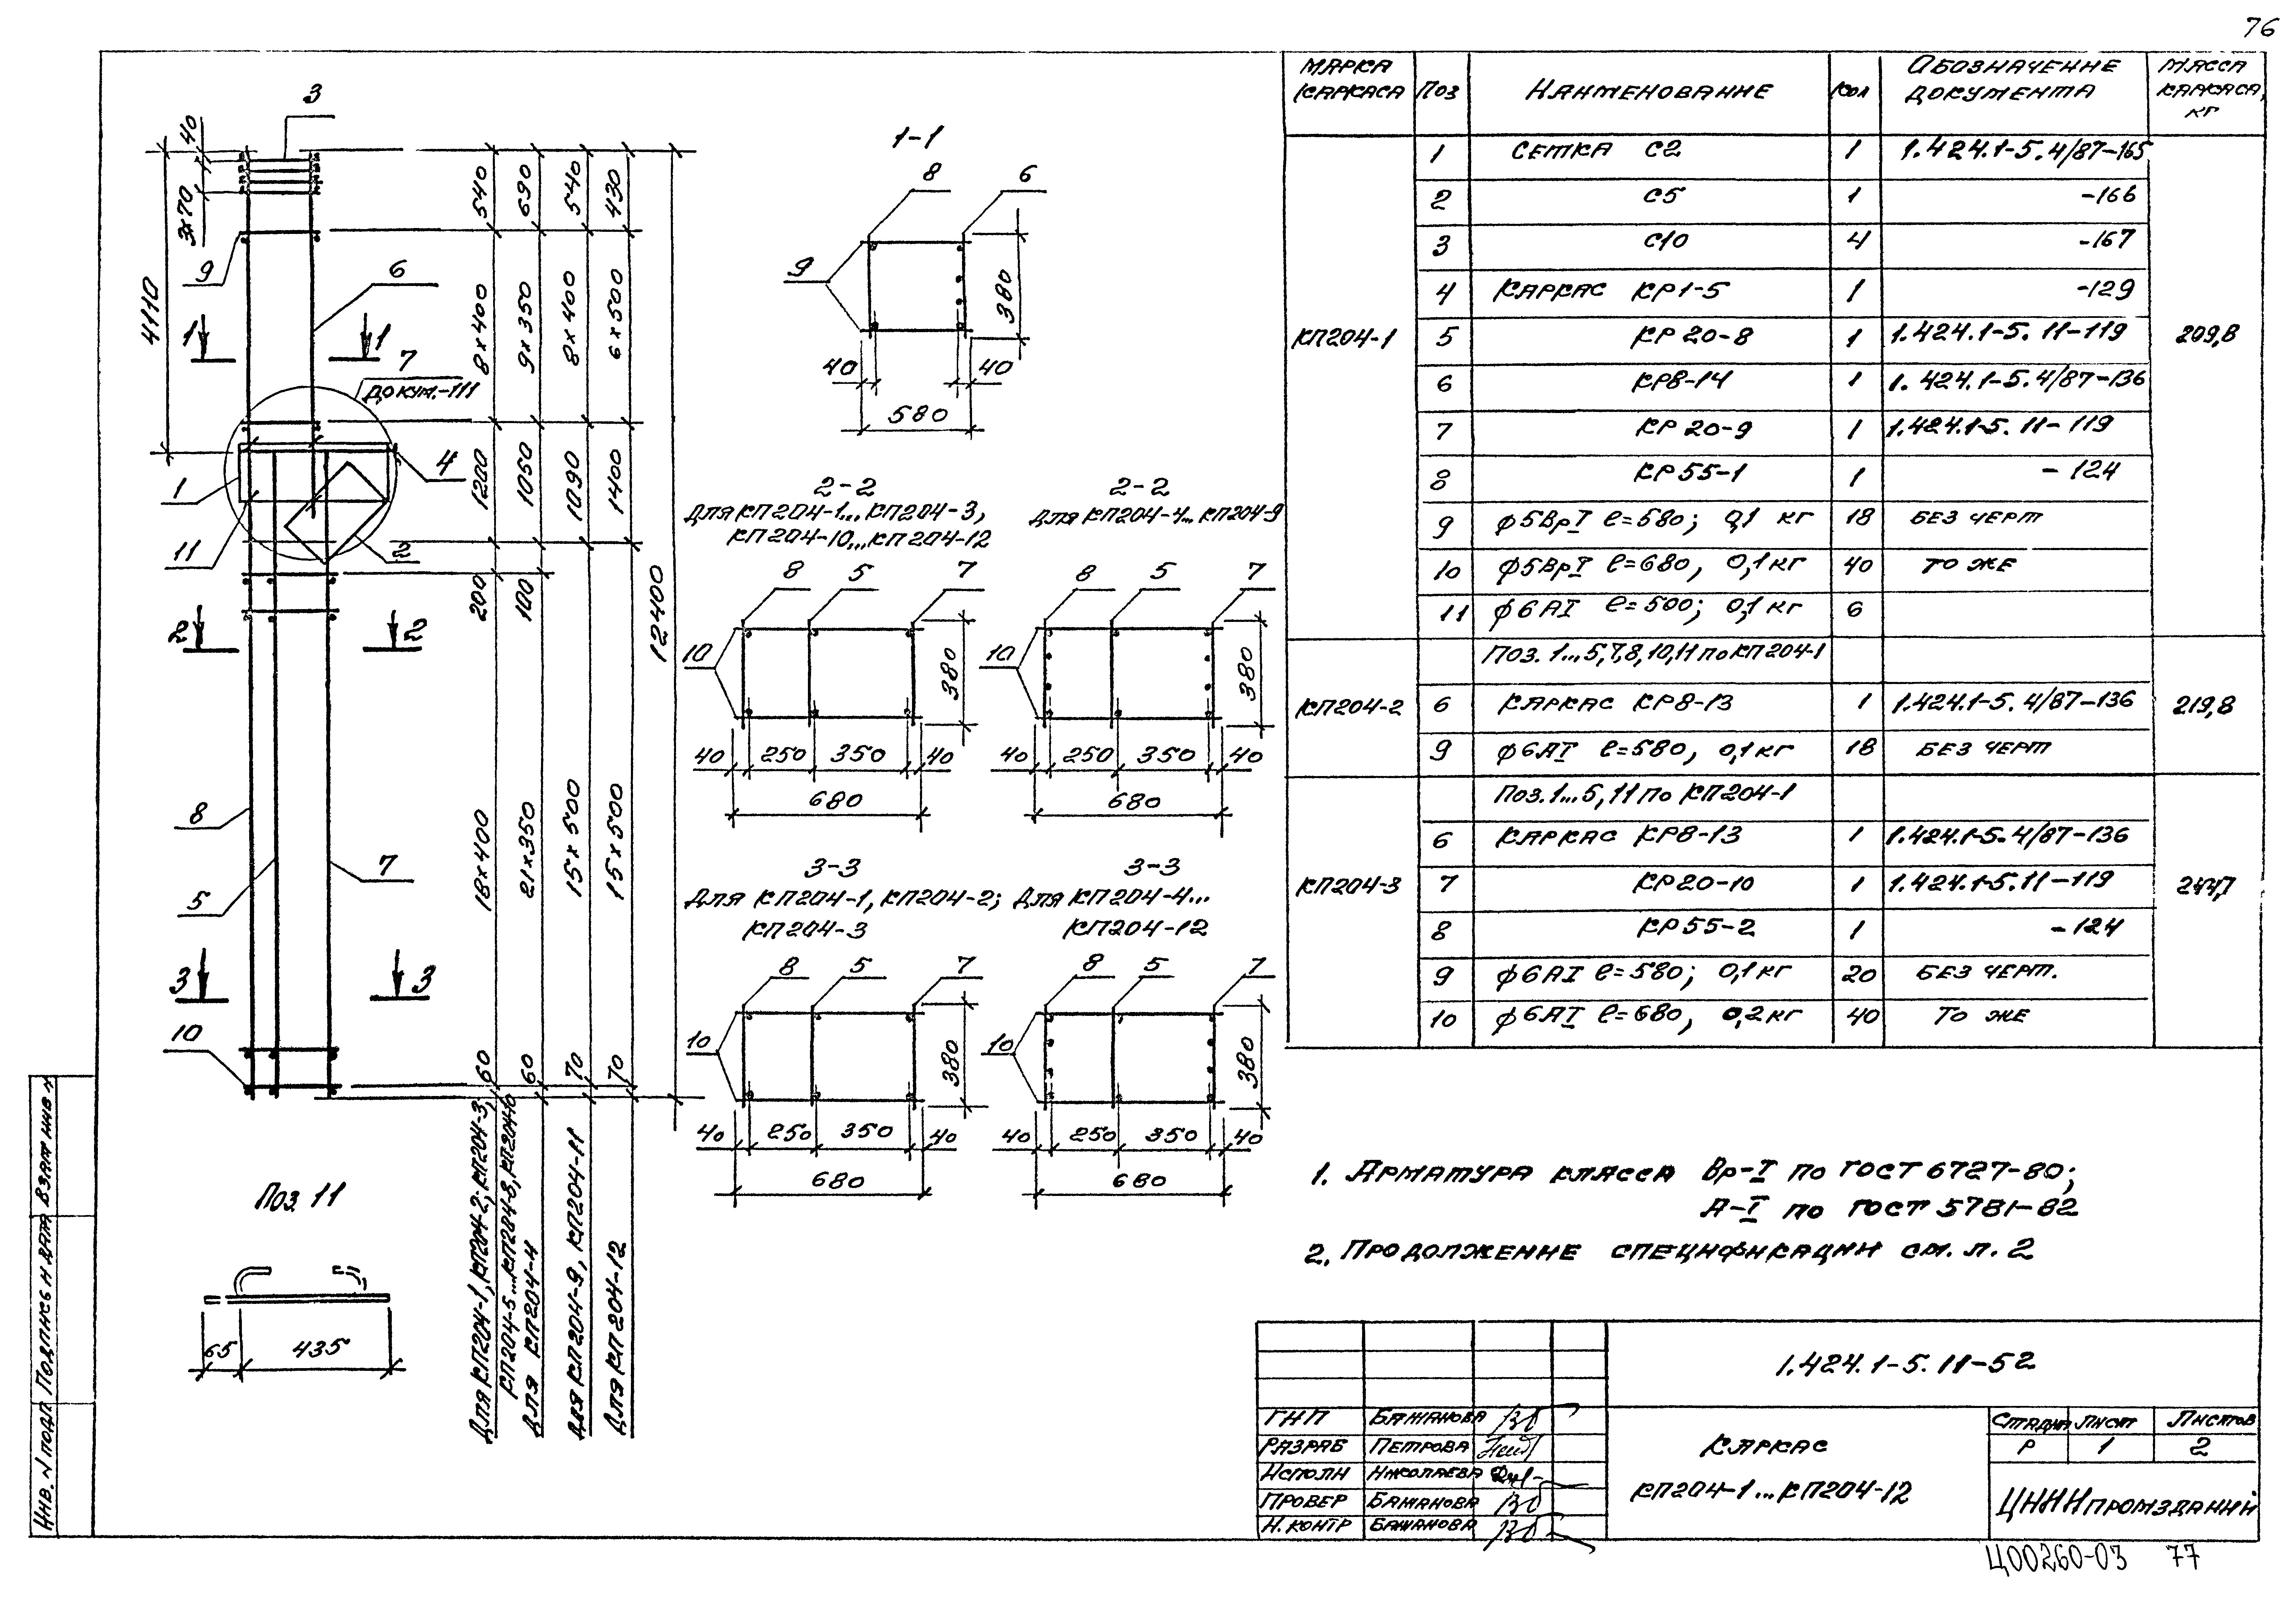 76
3
40
3х70
4110
9
6
1
1
7
докум.-111
4
1
11
2
2
2
8
7
5
3
3
10
540
690
540
430
8х400
9х350
8х400
6х500
1200
1050
1090
1400
200
100
12400
18х400
21х350
15х500
15х500
60
60
70
70
Для КП204-1, КП204-2; КП204-3,
КП204-5...КП204-8, КП204-10
Для КП204-4
Для КП204-9, КП204-11
Для КП204-12
Поз. 11
65
435
1-1
8
6
9
380
40
40
580
2-2
Для КП204-1...КП204-3,
КП204-10...КП204-12
8
5
7
10
380
40
250
350
40
680
2-2
Для КП204-4...КП204-9
8
5
7
10
380
40
250
350
40
680
3-3
Для КП204-1, КП204-2;
КП204-3
8
5
7
10
380
40
250
350
40
680
3-3
Для КП204-4...
КП204-12
8
5
7
10
380
40
250
350
40
680
Марка каркаса | Поз | Наименование | Кол | Обозначение документа | Масса каркаса, кг
КП204-1 | 209,8
1 | Сетка С2 | 1 | 1.424.1-5.4/87-165
2 | С5 | 1 | -166
3 | С10 | 4 | -167
4 | Каркас КР1-5 | 1 | -129
5 | КР20-8 | 1 | 1.424.1-5.11-119
6 | КР8-14 | 1 | 1.424.1-5.4/87-136
7 | КР20-9 | 1 | 1.424.1-5.11-119
8 | КР55-1 | 1 | -124
9 | ϕ5ВрI ℓ=580; 0,1 кг | 18 | Без черт
10 | ϕ5ВрI ℓ=680, 0,1 кг | 40 | То же
11 | ϕ6АI ℓ=500; 0,1 кг | 6
КП204-2 | 219,8
Поз. 1...5,7,8,10,11 по КП204-1
6 | Каркас КР8-13 | 1 | 1.424.1-5.4/87-136
9 | ϕ6АI ℓ=580, 0,1 кг | 18 | Без черт
КП204-3
Поз. 1...5, 11 по КП204-1
6 | Каркас КР8-13 | 1 | 1.424.1-5.4/87-136
7 | КР20-10 | 1 | 1.424.1-5.11-119
8 | КР55-2 | 1 | -124
9 | ϕ6АI ℓ=580; 0,1 кг | 20 | Без черт.
10 | ϕ6АI ℓ=680, 0,2 кг | 40 | То же
1. Арматура класса Вр-I по ГОСТ 6727-80;
А-I по ГОСТ 5781-82
2. Продолжение спецификации см. л. 2
1.424.1-5.11-52
ГИП Бажанова
Разраб Петрова
Исполн Николаева
Провер Бажанова
Н. контр Бажанова
Каркас
КП204-1...КП204-12
Стадия Лист Листов
Р 1 2
ЦНИИпромзданий
Ц00260-03 77
Инв. N подл Подпись и дата Взам инв н